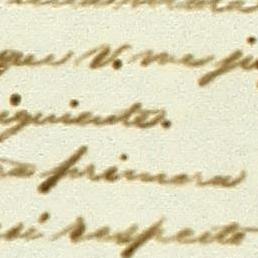 que V. me
iguiente.
primera
respecto